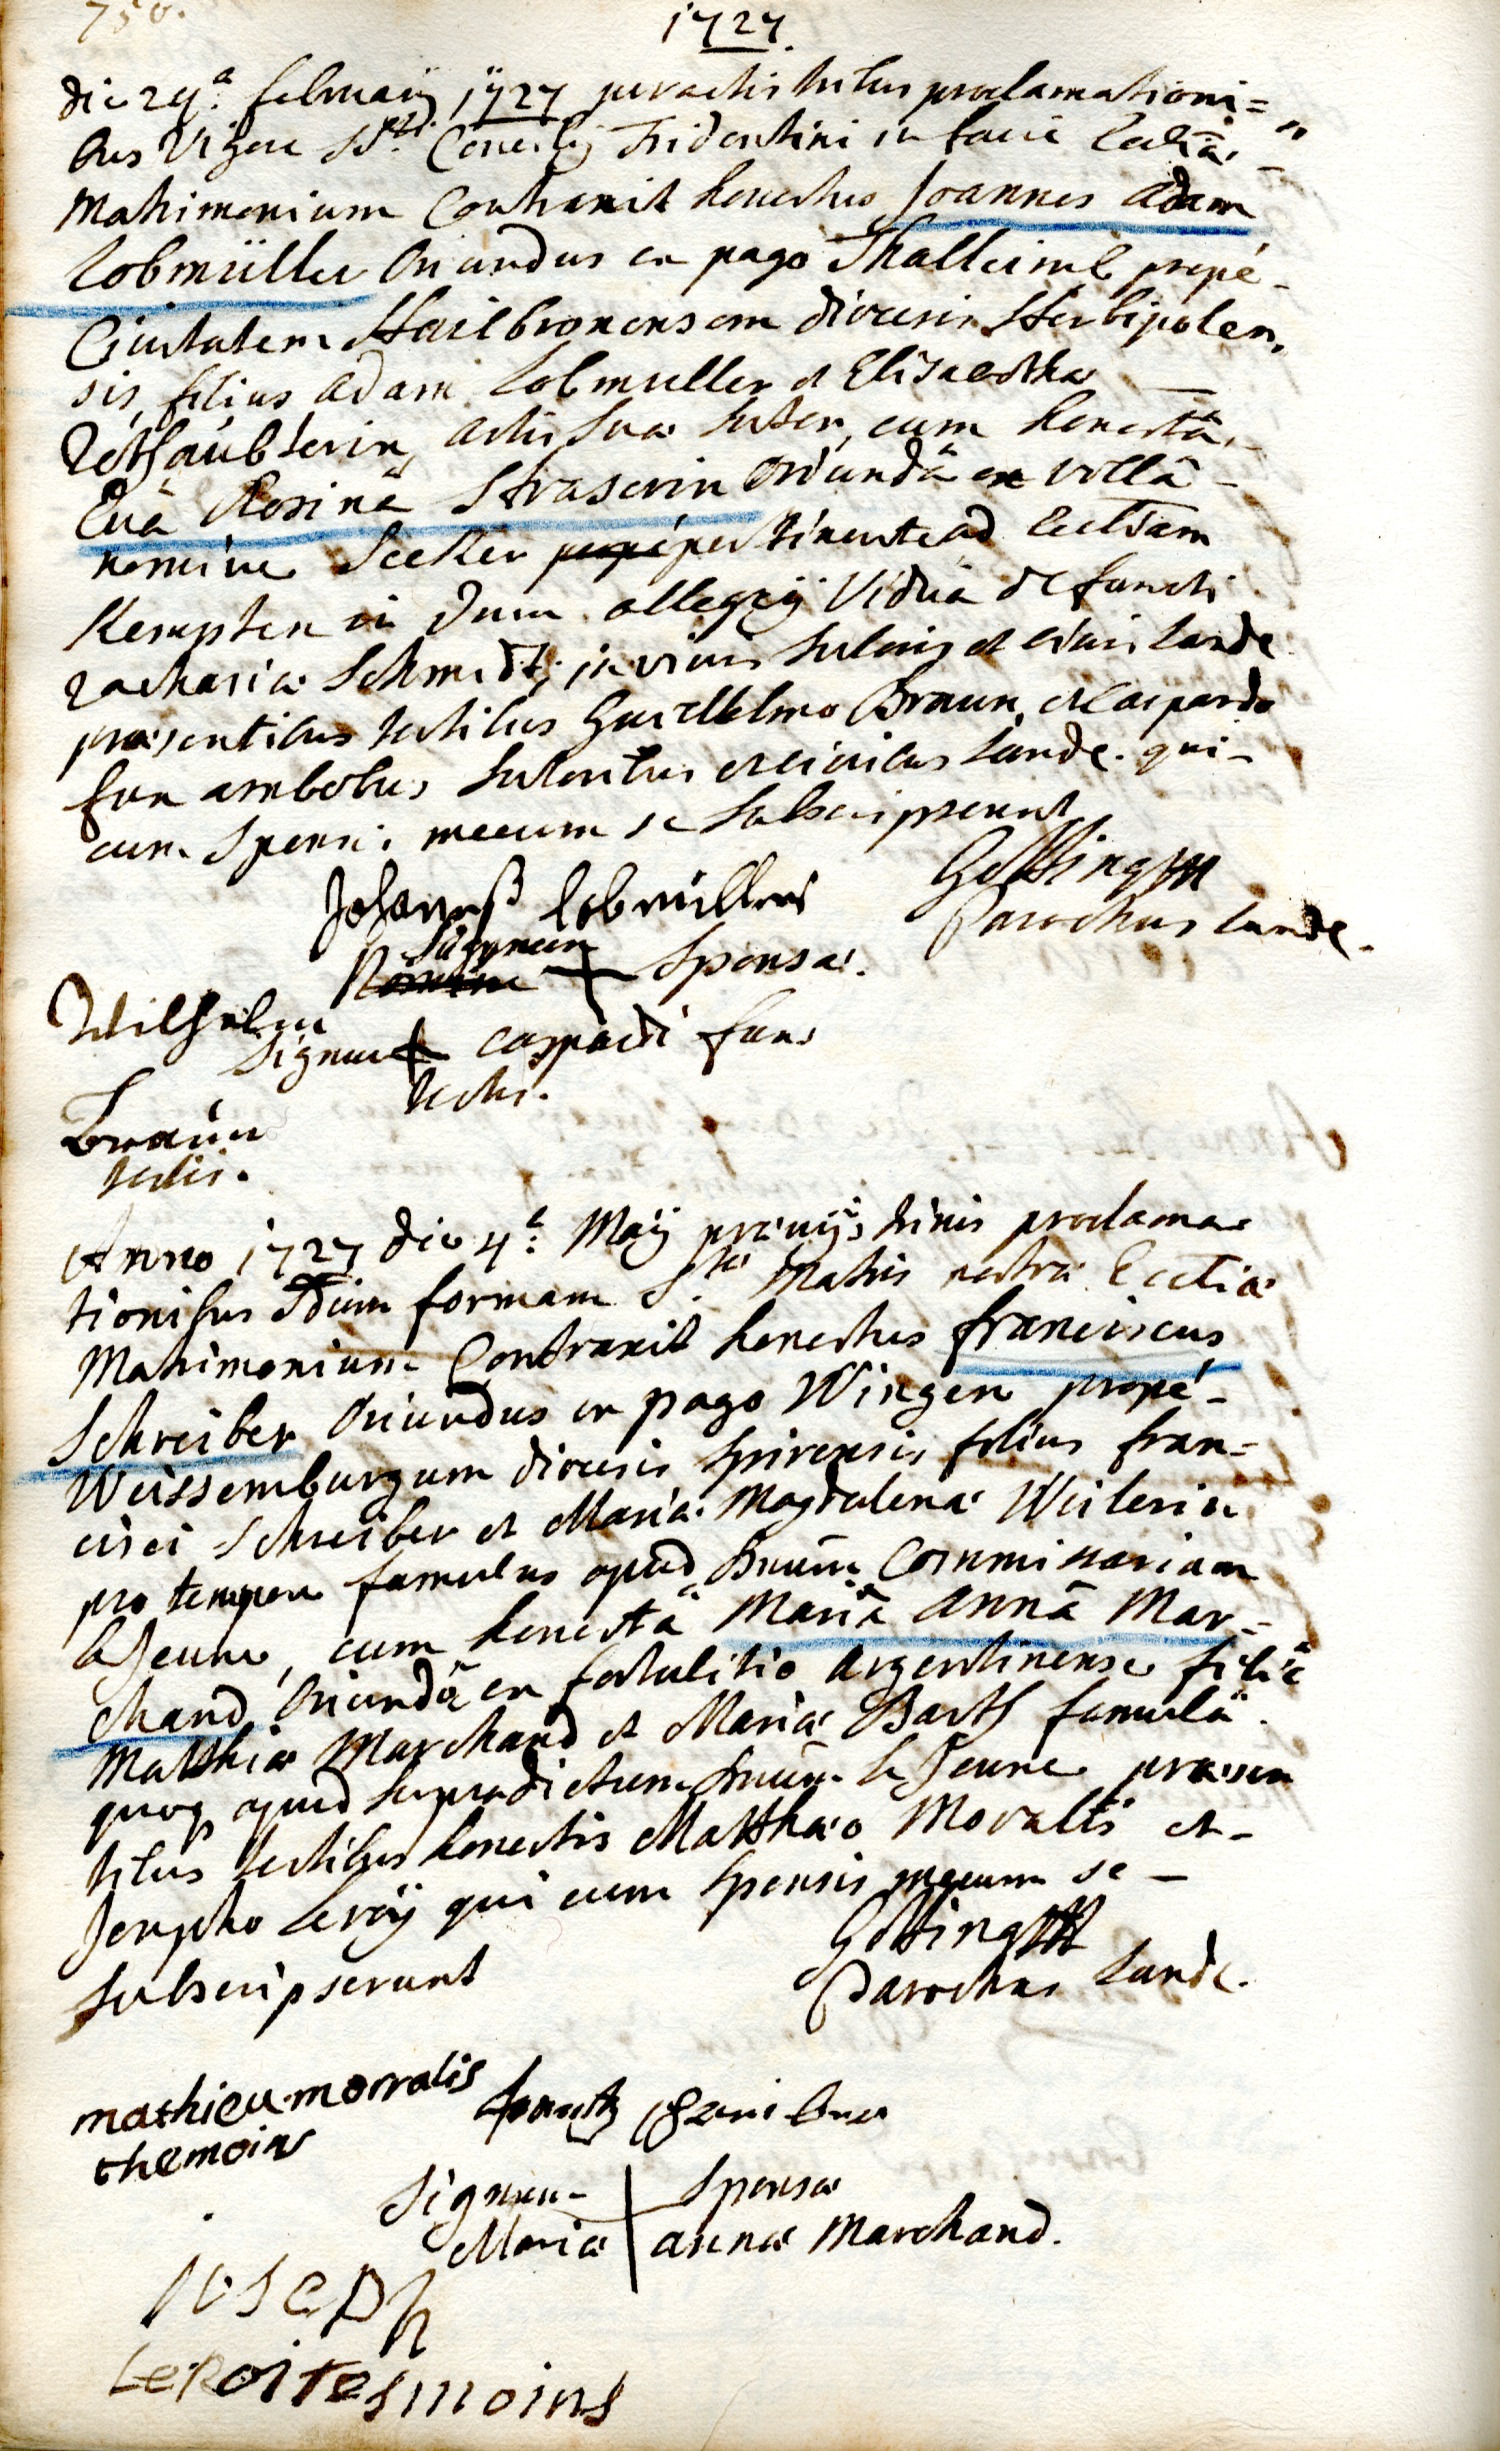 750.
1727.
die 24.a februarij 1727 peractis tribus proclamationi=
bus Vigore SSti. Concilij Tridentini in facie Ecclīæ
Matrimonium Contraxit honestus Joannes adam
Lobmüller Oriundus ex pago Thalleimb propé-
Ciuitatem Hailbronensem diœcesis Herbipolen,
sis, filius adami Lobmuller et Elisabethæ
Rothäubterin, artis suæ sutor, cum honestâ
Euâ Rosinâ Straserin Oriundâ ex villâ-
nomine Seeker propé pertinente ad Eccliam
Kempten in Dum allegoij Viduâ defuncti
zachariæ Schmidt, in viuis sutoris et ciuis Lande.
præsentibus testibus Guillelmo Braun, et Caspardo
fux ambobus sutoribus et ciuibus Lande. qui-
cum Sponsis mecum se subscripserunt
Gotting
Parochus Lande.
Johannes Lobmüller
Signum
Sponsæ.
Wilhelm
Signum + caspardi fuxs
testis.
Braun
testis.
Anno 1727 die 4.a Maij præuijs trinis proclama
tionibus Sdum formam S.tæ Matris nostræ Eccliæ
Matrimonium Contraxit honestus franciscus
Schreiber Oriundus ex pago Wingen propé-
Weissemburgum diœcesis Spirensis filius fran=
cisci Schreiber et Mariæ Magdalenæ Weilerin
pro tempore famulus apud Dnum Commissarium
le Jeune, cum honestâ Mariâ annâ Mar-
chand Oriundâ ex fortalitio argentinense filiâ
Matthiæ Marchand et Mariæ Barth famulâ
quoq apud supradictum Dnum le Jeune præsen
tibus testibus honestis Matthæo Moralis et-
Josepho Leroij qui cum Sponsis mecum se-
subscripserunt
Gotting
Parochus Lande.
mathieu morralis
themoins
frantz schreiber
Signum Sponsæ
Mariæ annæ Marchand.
ioseph
LeRoi tesmoins